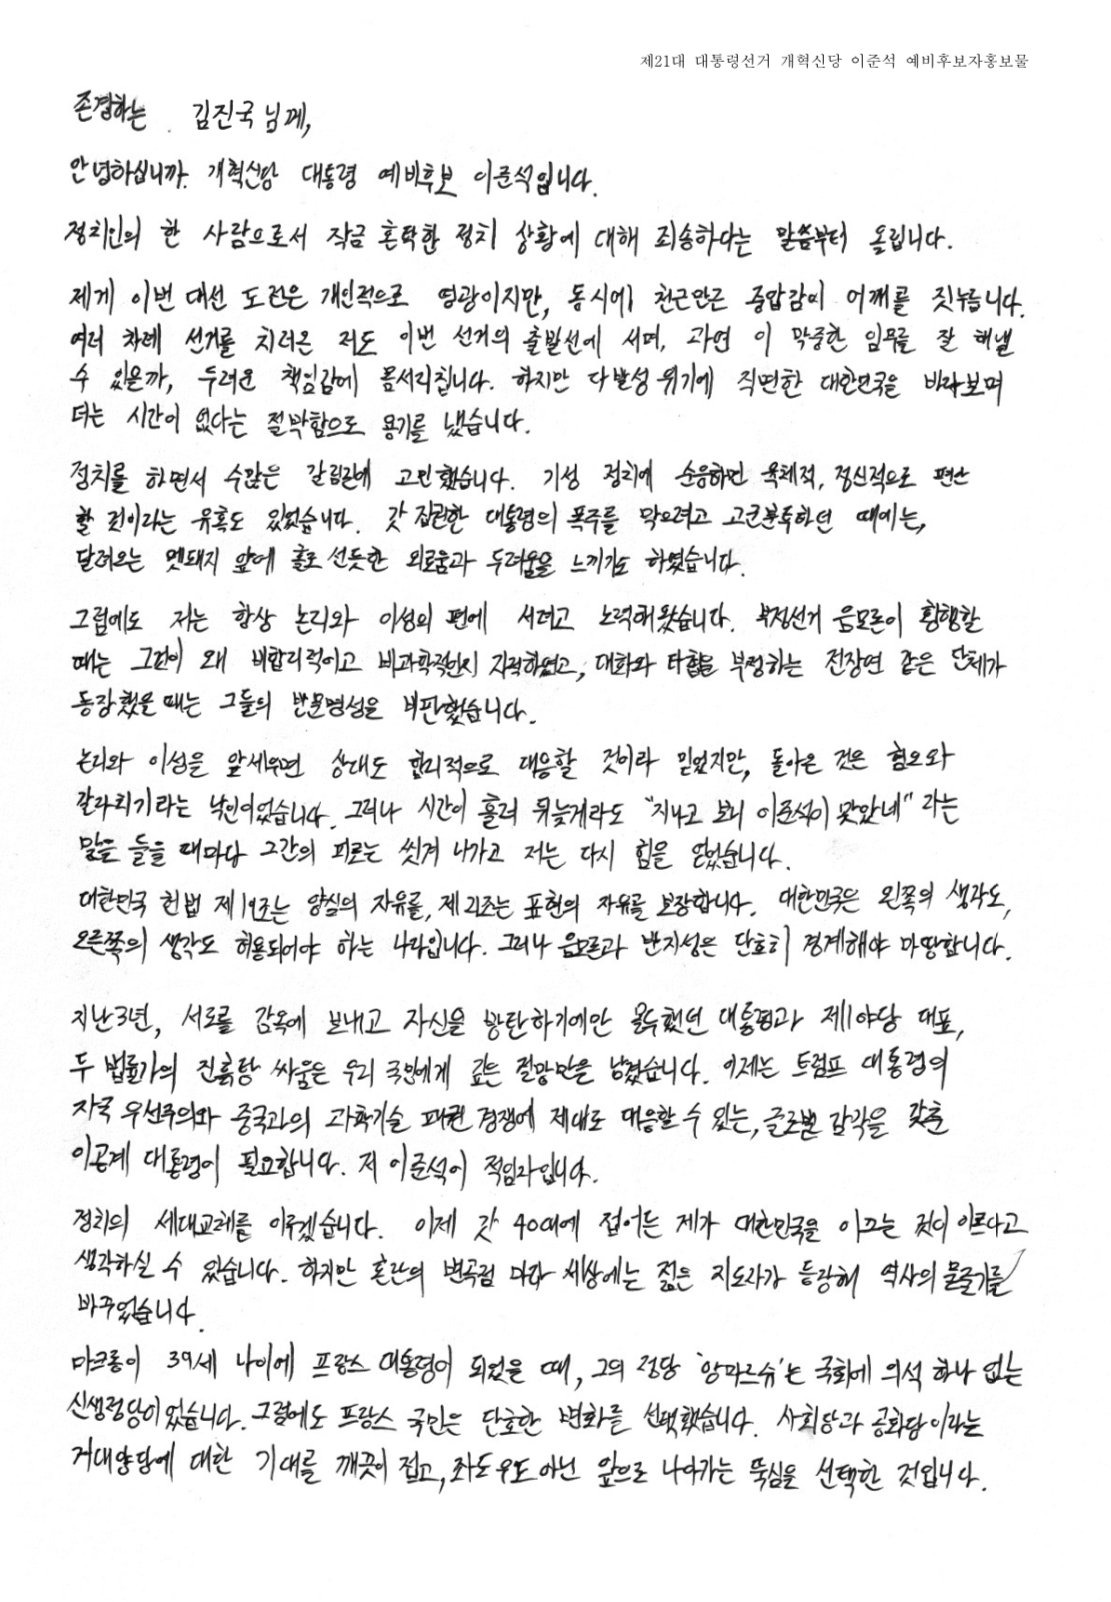 제21대 대통령선거 개혁신당 이준석 예비후보자홍보물
존경하는 김진국님께,
안녕하십니까. 개혁신당 대통령 예비후보 이준석입니다.
정치인의 한 사람으로서 작금 혼탁한 정치 상황에 대해 죄송하다는 말씀부터 올립니다.
제게 이번 대선 도전은 개인적으로 영광이지만, 동시에 천근만근 중압감이 어깨를 짓누릅니다.
여러 차례 선거를 치러온 저도 이번 선거의 출발선에 서며, 과연 이 막중한 임무를 잘 해낼
수 있을까, 두려운 책임감에 몸서리칩니다. 하지만 다발성 위기에 직면한 대한민국을 바라보며
더는 시간이 없다는 절박함으로 용기를 냈습니다.
정치를 하면서 수많은 갈림길에 고민했습니다. 기성 정치에 순응하면 육체적, 정신적으로 편안
할 것이라는 유혹도 있었습니다. 갓 집권한 대통령의 폭주를 막으려고 고군분투하던 때에는,
달려오는 멧돼지 앞에 홀로 선듯한 외로움과 두려움을 느끼기도 하였습니다.
그럼에도 저는 항상 논리와 이성의 편에 서려고 노력해왔습니다. 부정선거 음모론이 횡행할
때는 그것이 왜 비합리적이고 비과학적인지 지적하였고, 대화와 타협을 부정하는 전장연 같은 단체가
등장했을 때는 그들의 반문명성을 비판했습니다.
논리와 이성을 앞세우면 상대도 합리적으로 대응할 것이라 믿었지만, 돌아온 것은 혐오와
갈라치기라는 낙인이었습니다. 그러나 시간이 흘러 뒤늦게라도 "지나고 보니 이준석이 맞았네" 라는
말을 들을 때마다 그간의 피로는 씻겨 나가고 저는 다시 힘을 얻었습니다.
대한민국 헌법 제19조는 양심의 자유를, 제21조는 표현의 자유를 보장합니다. 대한민국은 왼쪽의 생각도,
오른쪽의 생각도 허용되어야 하는 나라입니다. 그러나 음모론과 반지성은 단호히 경계해야 마땅합니다.
지난3년, 서로를 감옥에 보내고 자신을 방탄하기에만 몰두했던 대통령과 제1야당 대표,
두 법률가의 진흙탕 싸움은 우리 국민에게 깊은 절망만을 남겼습니다. 이제는 트럼프 대통령의
자국 우선주의와 중국과의 과학기술 패권 경쟁에 제대로 대응할 수 있는, 글로벌 감각을 갖춘
이공계 대통령이 필요합니다. 저 이준석이 적임자입니다.
정치의 세대교체를 이루겠습니다. 이제 갓 40대에 접어든 제가 대한민국을 이끄는 것이 이르다고
생각하실 수 있습니다. 하지만 혼란의 변곡점 마다 세상에는 젊은 지도자가 등장해 역사의 물줄기를
바꾸었습니다.
마크롱이 39세 나이에 프랑스 대통령이 되었을 때, 그의 정당 '앙마르슈'는 국회에 의석 하나 없는
신생정당이었습니다. 그럼에도 프랑스 국민은 단호한 변화를 선택했습니다. 사회당과 공화당이라는
거대양당에 대한 기대를 깨끗이 접고, 좌도 우도 아닌 앞으로 나아가는 뚝심을 선택한 것입니다.